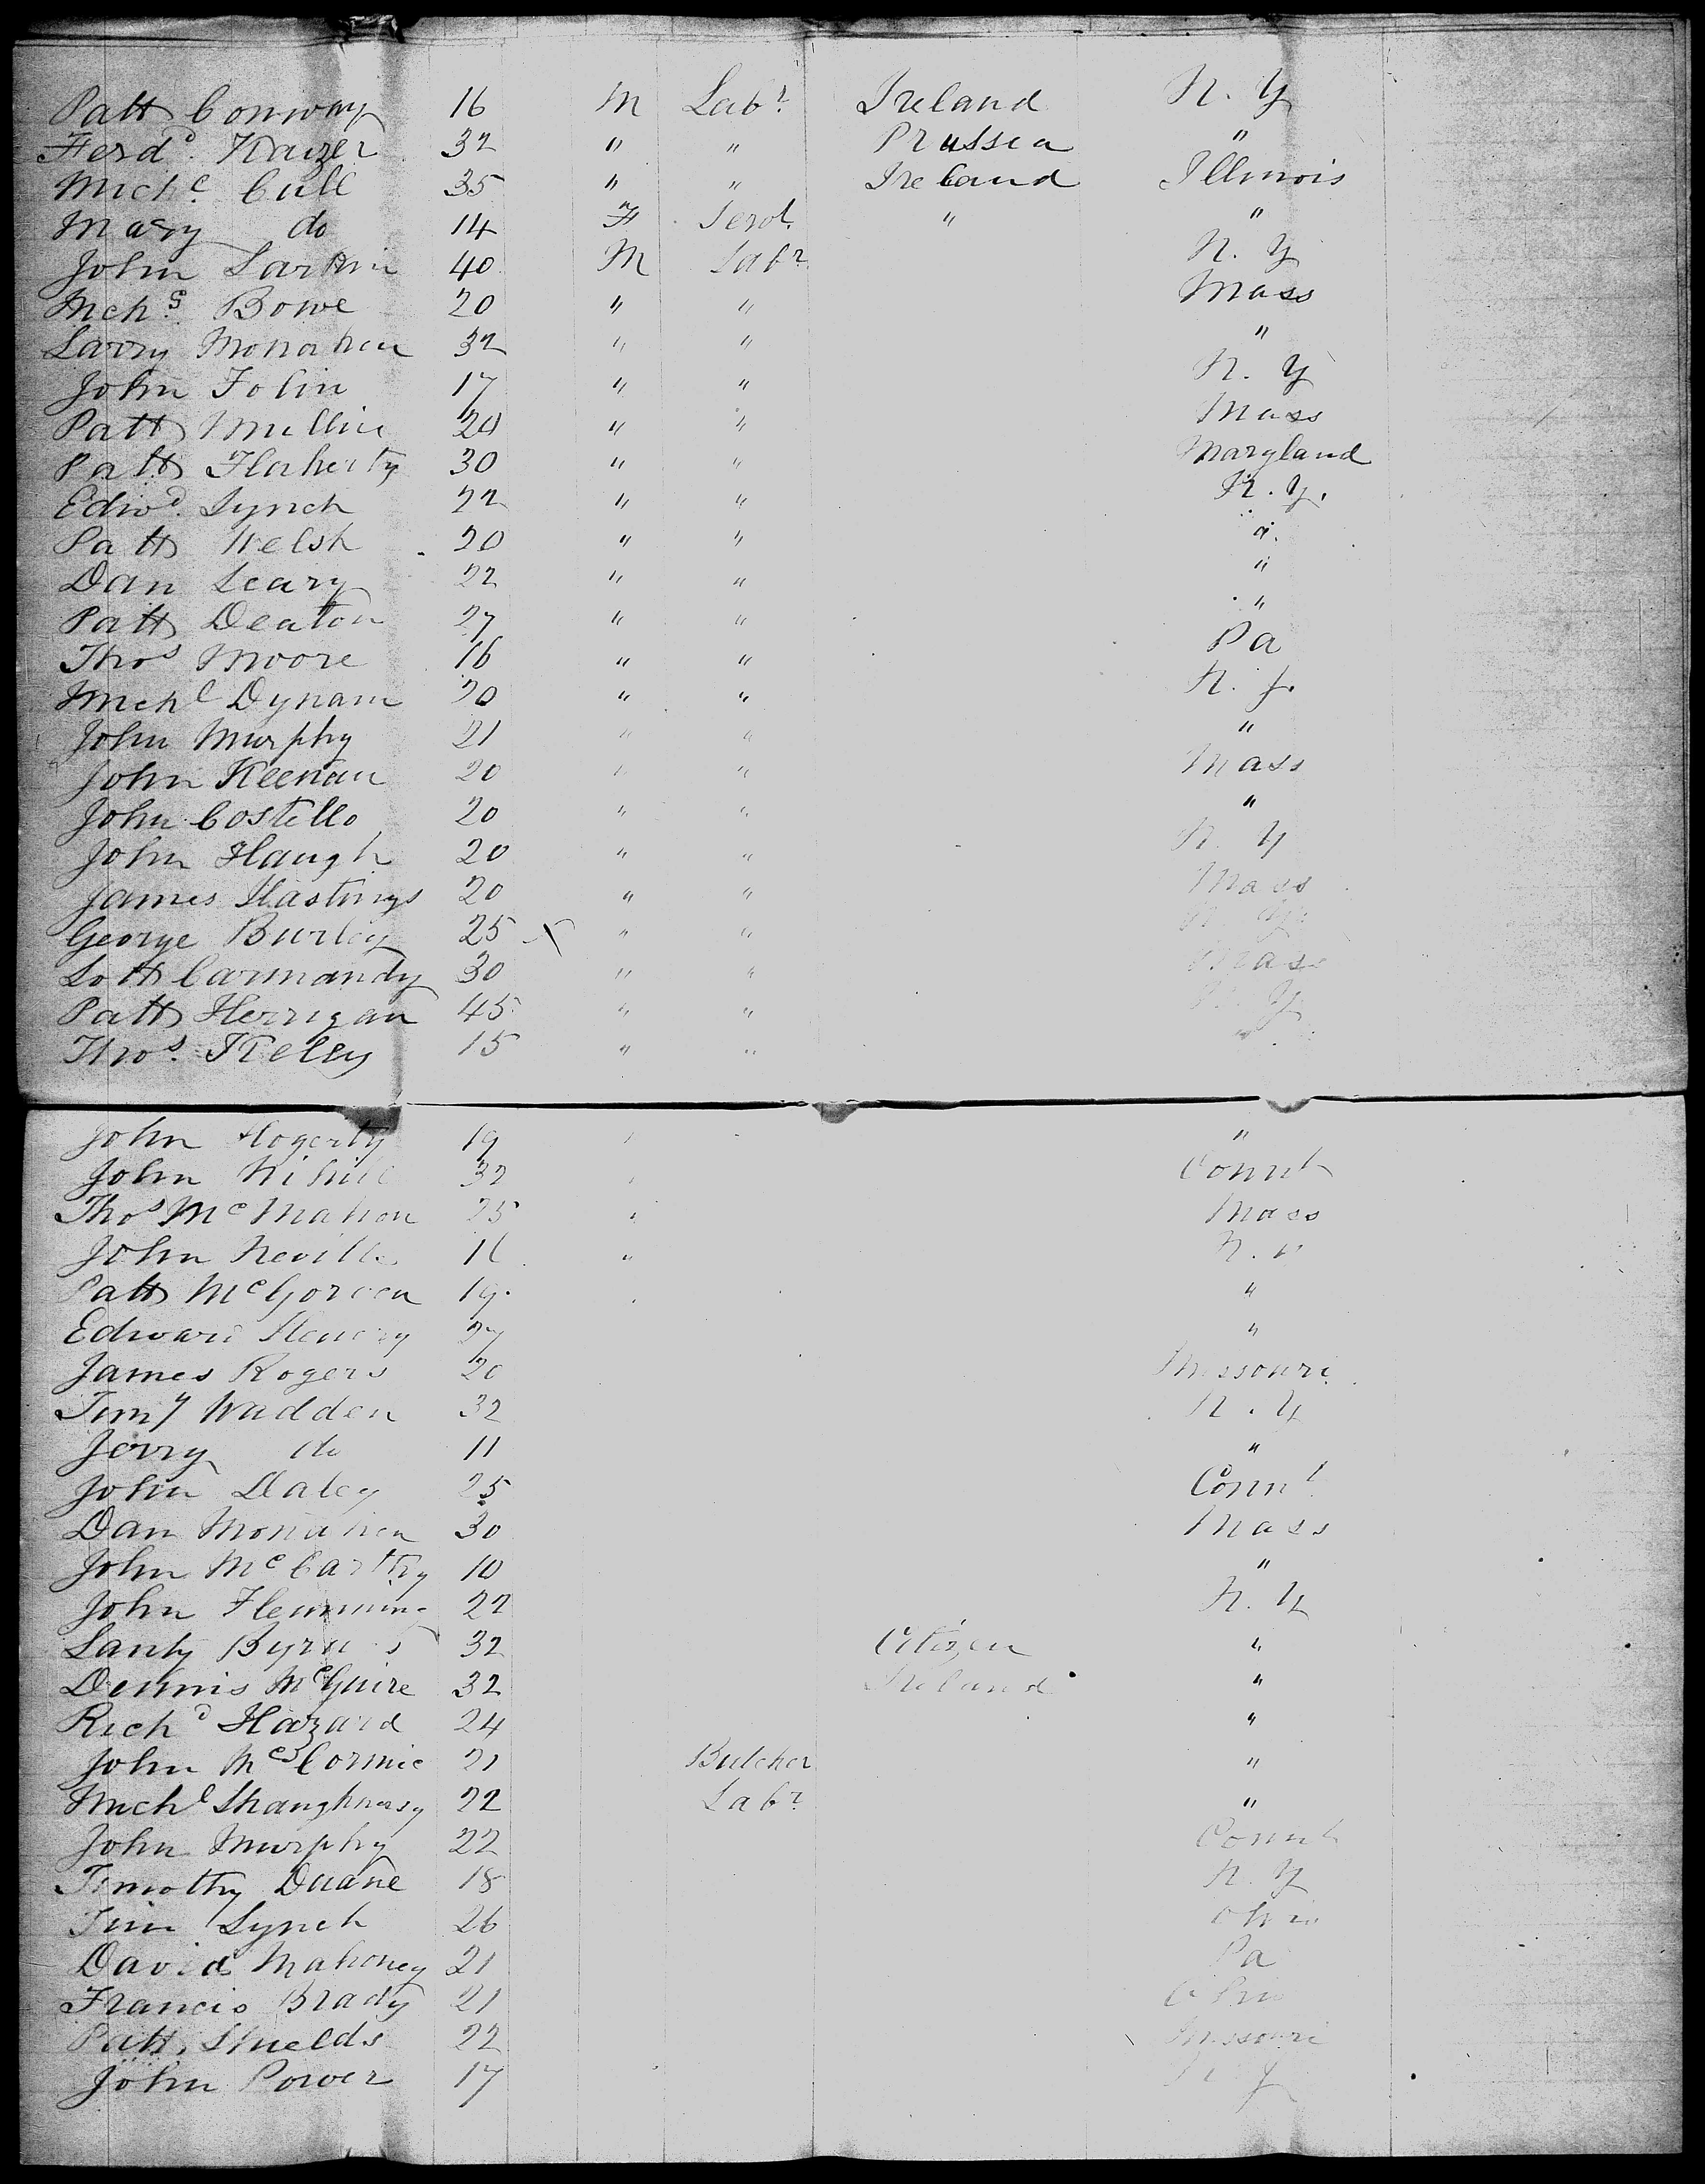 Patt Conway 16 M Labr. Ireland N. Y
Ferdd. Kaizer 32 " " Prussia "
Michl. Cull 35 " " Ireland Illinois
Mary do 14 F Servt. " "
John Larkin 40 M Labr. N. Y
Mchs. Bowe 20 " " Mass
Larry Monahan 32 " " "
John Tolin 17 " " N. Y
Patt Mullin 20 " " Mass
Patt Flaherty 30 " " Maryland
Edwd. Lynch 22 " " N. Y.
Patt Welsh 20 " " "
Dan Leary 22 " " "
Patt Deaton 27 " " "
Thos Moore 16 " " Pa
Michl Dynam 20 " " N. J.
John Murphy 21 " " "
John Keenan 20 " " Mass
John Costello 20 " " "
John Haugh 20 " " N. Y
James Hastings 20 " " Mass
George Burley 25 X " " N. Y.
Lott Carmandy 30 " " Mass
Patt Herrigan 45 " " N. Y
Thos. Kelly 15 " " "
John Hogerty 19 " "
John 32 " Connt
Thos McMahon 25 " Mass
John Neville " N.
Patt McGoreen 19 "
Edward 27 "
James Rogers 20 Missouri
Timy Wadden 32 N. Y
Jerry do 11 "
John Daley 25 Connt
Dan Monahan 30 Mass
John McCarthy 10 "
John Flemming 22 N. Y
Lanty Byrnes 32 Citizen "
Dennis McGuire 32 Ireland "
Richd Hazard 24 "
John McCormic 21 Butcher "
Michl Shaughnessy 22 Labr. "
John Murphy 22 Connt
Timothy Duane 18 N. Y
Tim Lynch 26 Ohio
David Mahoney 21 Pa
Francis Brady 21 Ohio
Patt Shields 22 Missouri
John Power 17 N. Y